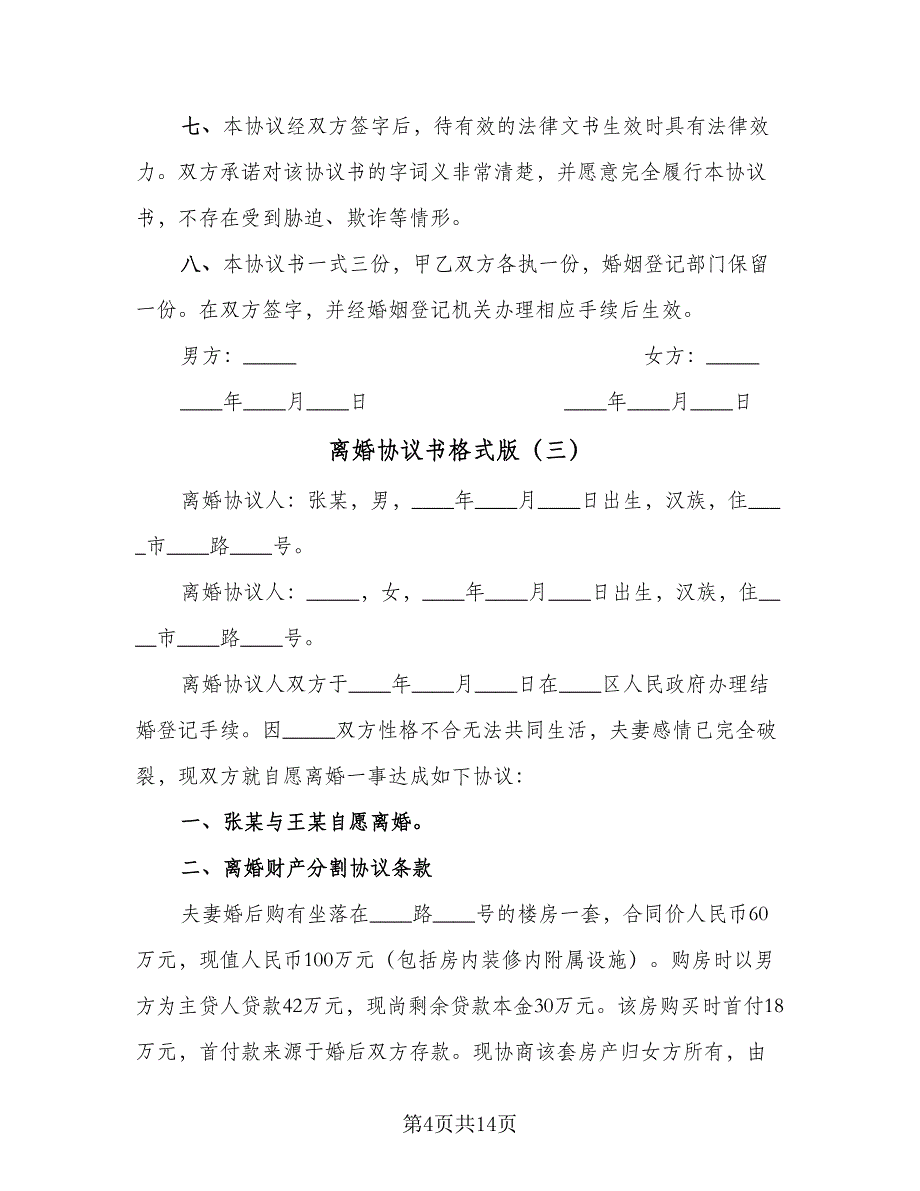 七、本协议经双方签字后，待有效的法律文书生效时具有法律效
力。双方承诺对该协议书的字词义非常清楚，并愿意完全履行本协议
书，不存在受到胁迫、欺诈等情形。
八、本协议书一式三份，甲乙双方各执一份，婚姻登记部门保留
一份。在双方签字，并经婚姻登记机关办理相应手续后生效。
男方：_____ 女方：_____
____年____月____日 ____年____月____日
离婚协议书格式版（三）
离婚协议人：张某，男，____年____月____日出生，汉族，住___
_市____路____号。
离婚协议人：_____，女，____年____月____日出生，汉族，住__
__市____路____号。
离婚协议人双方于____年____月____日在____区人民政府办理结
婚登记手续。因_____双方性格不合无法共同生活，夫妻感情已完全破
裂，现双方就自愿离婚一事达成如下协议：
一、张某与王某自愿离婚。
二、离婚财产分割协议条款
夫妻婚后购有坐落在____路____号的楼房一套，合同价人民币60
万元，现值人民币100万元（包括房内装修内附属设施）。购房时以男
方为主贷人贷款42万元，现尚剩余贷款本金30万元。该房购买时首付18
万元，首付款来源于婚后双方存款。现协商该套房产归女方所有，由
第4页共14页